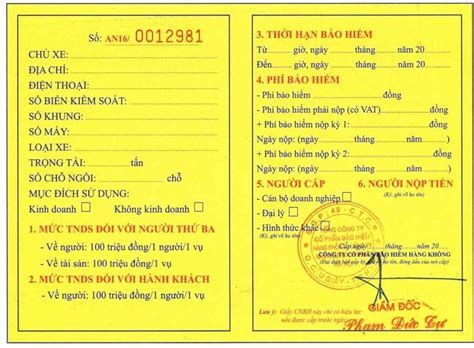 Số: AN16/ 0012981
CHỦ XE:
ĐỊA CHỈ:
ĐIỆN THOẠI:
SỐ BIỂN KIỂM SOÁT:
SỐ KHUNG:
SỐ MÁY:
LOẠI XE:
TRỌNG TẢI: tấn
SỐ CHỖ NGỒI: chỗ
MỤC ĐÍCH SỬ DỤNG:
Kinh doanh Không kinh doanh
1. MỨC TNDS ĐỐI VỚI NGƯỜI THỨ BA
- Về người: 100 triệu đồng/1 người/1 vụ
- Về tài sản: 100 triệu đồng/1 vụ
2. MỨC TNDS ĐỐI VỚI HÀNH KHÁCH
- Về người: 100 triệu đồng/1 người/1 vụ
3. THỜI HẠN BẢO HIỂM
Từ giờ, ngày tháng năm 20
Đến giờ, ngày tháng năm 20
4. PHÍ BẢO HIỂM
- Phí bảo hiểm: đồng
- Phí bảo hiểm phải nộp (có VAT): đồng
+ Phí bảo hiểm nộp kỳ 1: đồng
Ngày nộp: (ngày tháng năm )
+ Phí bảo hiểm nộp kỳ 2: đồng
Ngày nộp: (ngày tháng năm )
5. NGƯỜI CẤP
- Cán bộ doanh nghiệp
- Đại lý
- Hình thức khác
(Ký, ghi rõ họ tên)
6. NGƯỜI NỘP TIỀN
(Ký, ghi rõ họ tên)
Cấp ngày tháng năm 20
CÔNG TY CỔ PHẦN BẢO HIỂM HÀNG KHÔNG
TỔNG CÔNG TY
CỔ PHẦN BẢO HIỂM
HÀNG KHÔNG
GIÁM ĐỐC
Phạm Đức Tuệ
Lưu ý: Giấy CNBH này chỉ có hiệu lực
nếu được cấp trước ngày